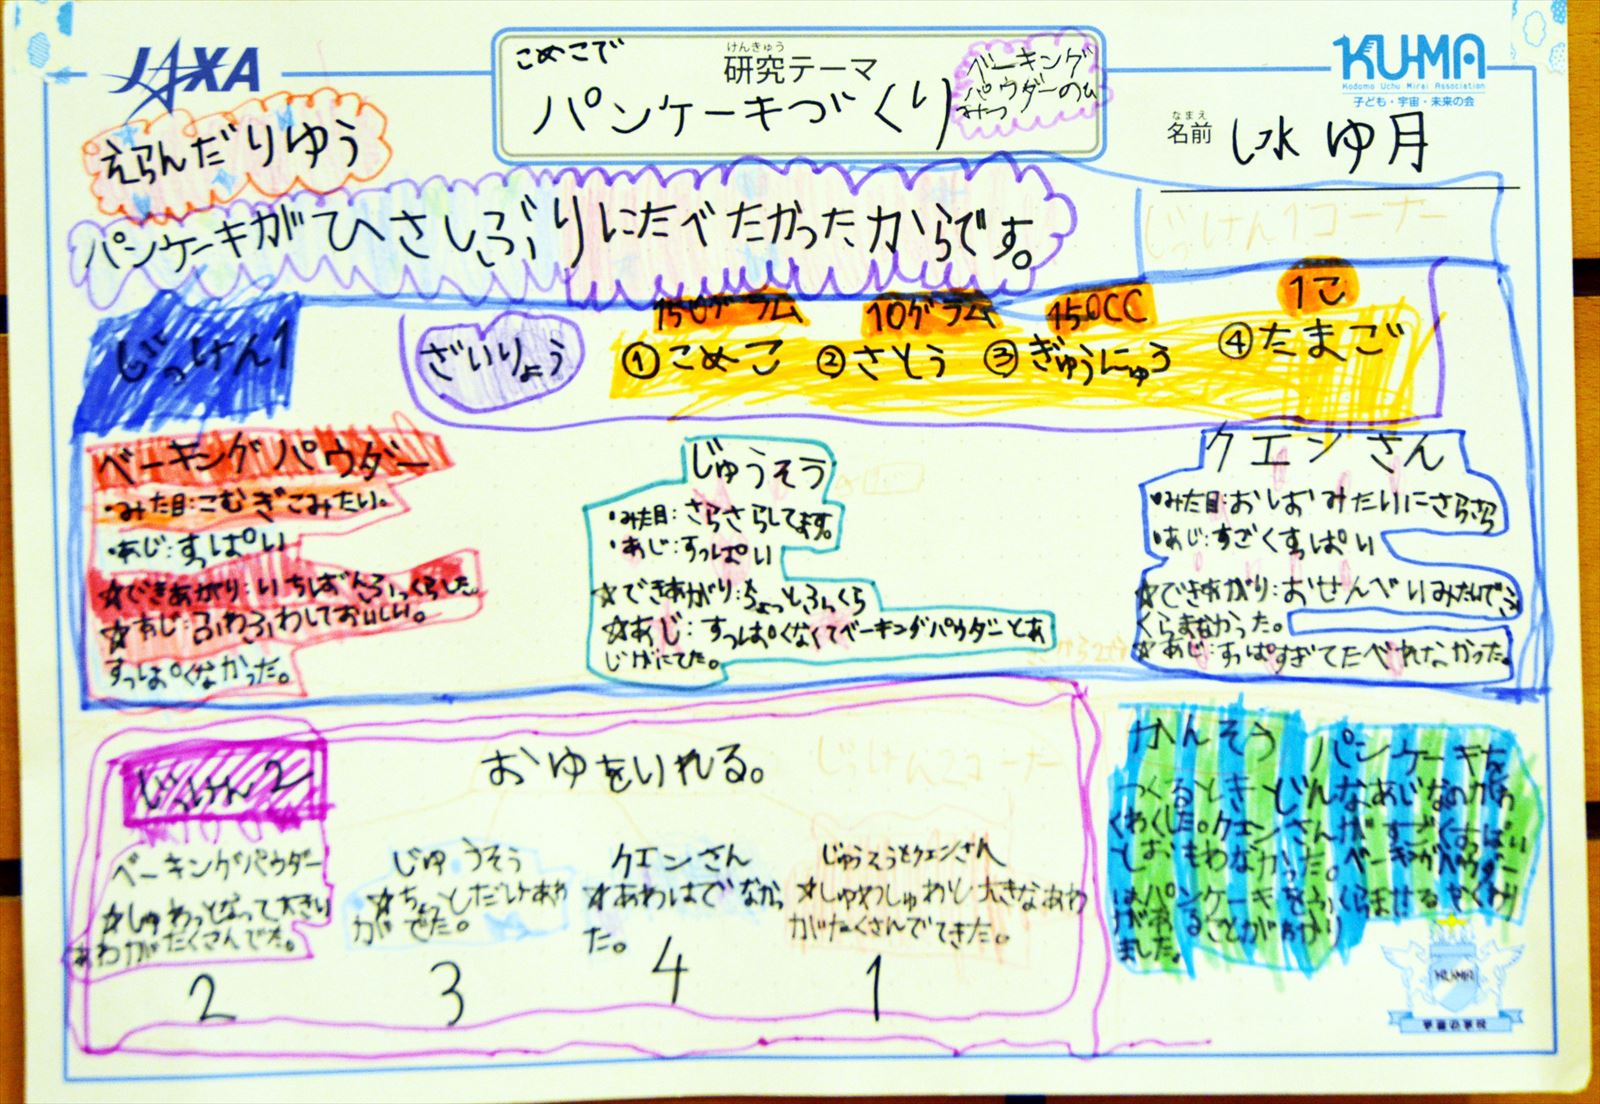 JAXA
こめこで
けんきゅう
研究テーマ
パンケーキづくり
ベーキング
パウダーのひ
みつ
KU-MA
Kodomo Uchu Mirai Association
子ども・宇宙・未来の会
なまえ
名前
ゆ月
えらんだりゆう
パンケーキがひさしぶりにたべたかったからです。
じっけん1コーナー
じっけん1
ざいりょう
150グラム 10グラム 150CC 1こ
①こめこ ②さとう ③ぎゅうにゅう ④たまご
ベーキングパウダー
・みた目:こむぎこみたい。
・あじ:すっぱい
☆できあがり:いちばんふっくらした。
☆あじ:ふわふわしておいしい。
すっぱくなかった。
じゅうそう
・みた目:さらさらしてます。
・あじ:すっぱい
☆できあがり:ちょっとふっくら
☆あじ:すっぱくなくてベーキングパウダーとあ
じがにてた。
クエンさん
・みた目:おしおみたいにさらさら
・あじ:すごくすっぱい
☆できあがり:おせんべいみたいでふ
くらまなかった。
☆あじ:すっぱすぎてたべれなかった。
じっけん2
おゆをいれる。
じっけん2コーナー
ベーキングパウダー
☆しゅわっとなって大きい
あわがたくさんでた。
2
じゅうそう
☆ちょっとだけあわ
がでた。
3
クエンさん
☆あわはでなかっ
た。
4
じゅうそうとクエンさん
☆しゅわっしゅわと大きなあわ
がたくさんでてきた。
1
かんそう パンケーキを
つくるときどんなあじなのかわ
くわくした。クエンさんがすごくすっぱい
とおもわなかった。ベーキングパウダー
はパンケーキをふくらませるやくわり
があることがわかり
ました。
KU-MA